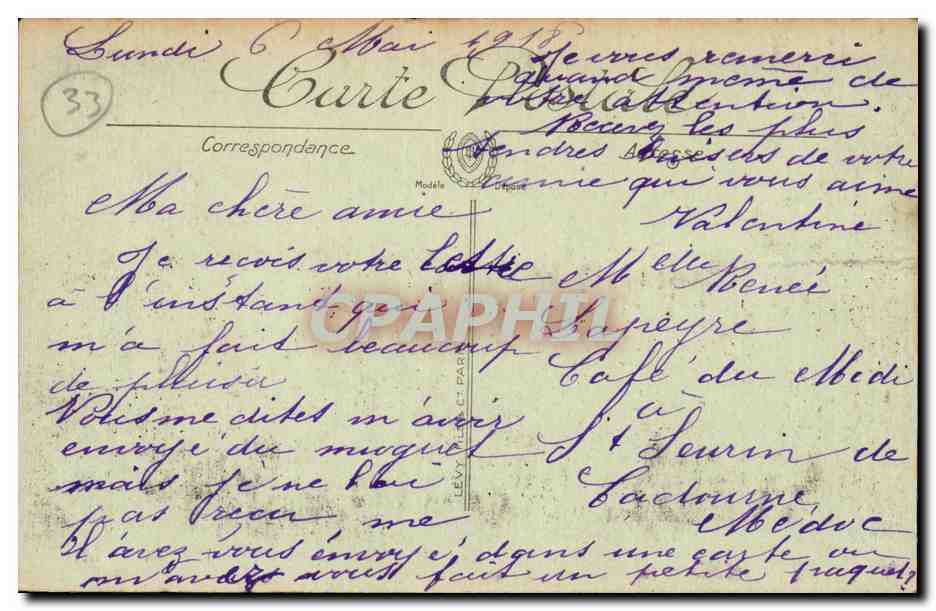 Lundi 6 Mai 1918
33
Carte Postale
Correspondance
Adresse
Modèle Déposé
Ma chère amie
Je recois votre lettre
à l'instant qui
m'a fait beaucoup
de plaisir
Vous me dites m'avoir
envoyé du muguet
mais je ne l'ai
pas recu me
l'avez vous envoyé dans une carte ou
m'avez vous fait un petite paquet?
Je vous remerci
quand même de
votre attention.
Recevez les plus
tendres baisers de votre
amie qui vous aime
Valentine
Melle Renée
Lapeyre
Café du Midi
à
St Seurin de
Cadourne
Médoc
LÉVY FILS & Cie PAR
CPAPHIL